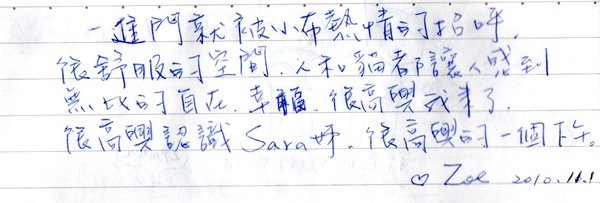 一進門就被小布熱情的招呼,
很舒服的空間.人和貓都讓人感到
無比的自在.幸福.很高興我來了.
很高興認識 Sara 呀.很高興的一個下午。
♡ Zoe 2010.11.1